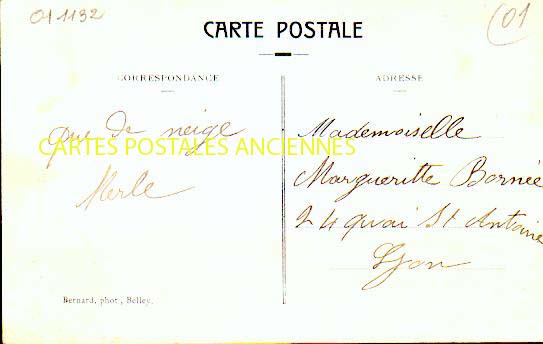 011132
(01
CARTE POSTALE
CORRESPONDANCE
ADRESSE
que de neige
Merle
CARTES POSTALES ANCIENNES
Mademoiselle
Margueritte Bornée
24 quai St Antoine
Lyon
Bernard, phot., Belley.